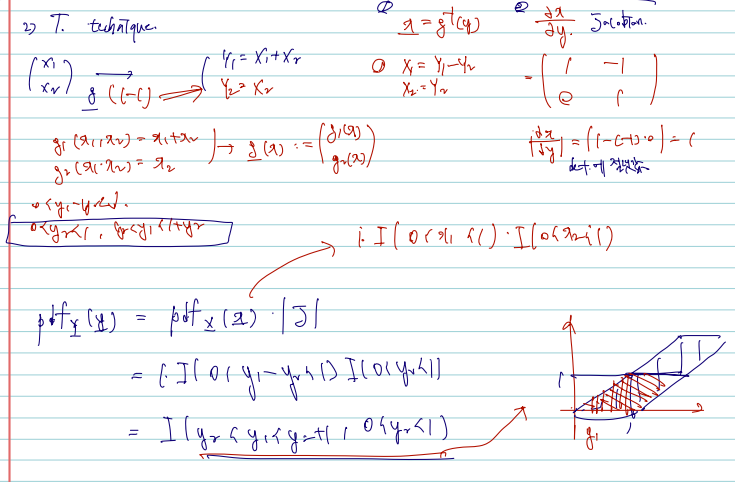 2) T. technique.
① x = g⁻¹(y) ② ∂x/∂y. Jacobian.
(x₁ x₂) → g (1-1) ( Y₁ = X₁+X₂
Y₂ = X₂
① X₁ = Y₁-Y₂
X₂ = Y₂
= ( 1 -1
0 1 )
g₁(x₁,x₂) = x₁+x₂
g₂(x₁,x₂) = x₂
→ g(x) := (g₁(x) g₂(x))
|dx/dy| = |1-(-1)·0| = 1
det.에 절댓값
0<y₁-y₂<1.
0<y₂<1, y₂<y₁<1+y₂
1·I(0<x₁<1)·I(0<x₂<1)
pdf_Y(y) = pdf_X(x)·|J|
= 1·I(0<y₁-y₂<1) I(0<y₂<1)
= I(y₂<y₁<y₂+1, 0<y₂<1)
1
1
y₁